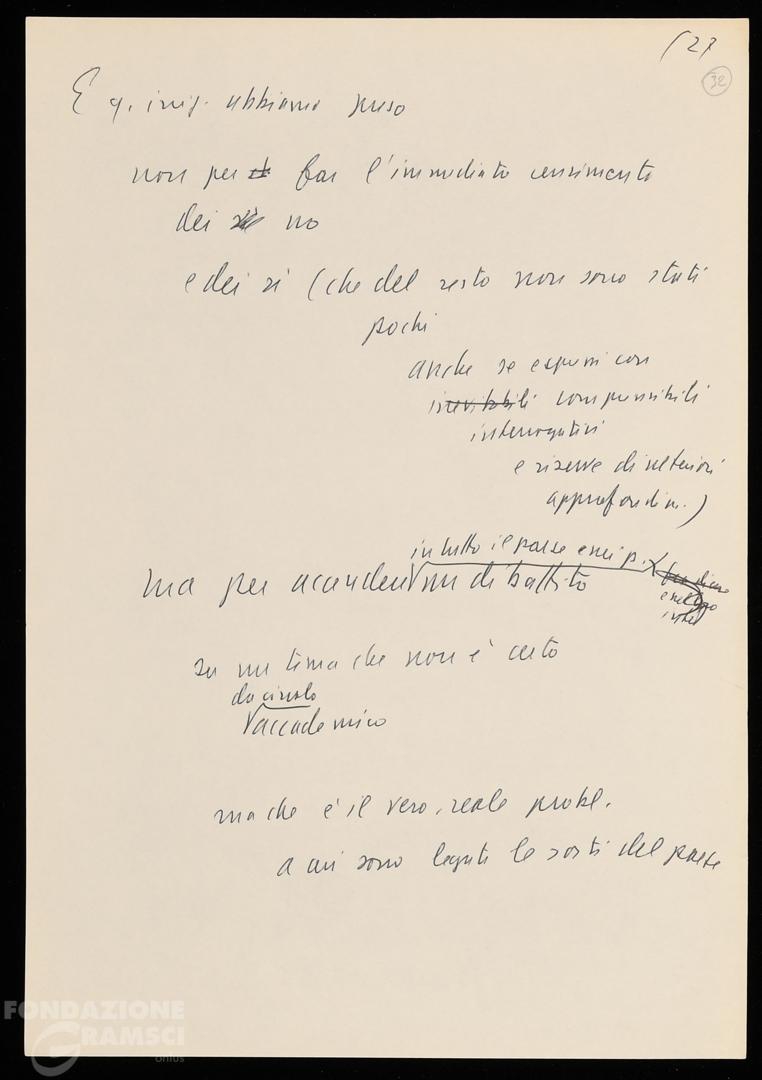 (27
32
E q. iniz. abbiamo preso
non per far l'immediato censimento
dei no
e dei sì (che del resto non sono stati
pochi
anche se espressi con
inevitabili comprensibili
interrogativi
e riserve di ulteriori
approfondim.)
in tutto il paese e nei p.
ma per accendere un dibattito
su un tema che non è certo
da circolo
accademico
ma che è il vero, reale probl.
a cui sono legate le sorti del paese
FONDAZIONE
GRAMSCI
onlus